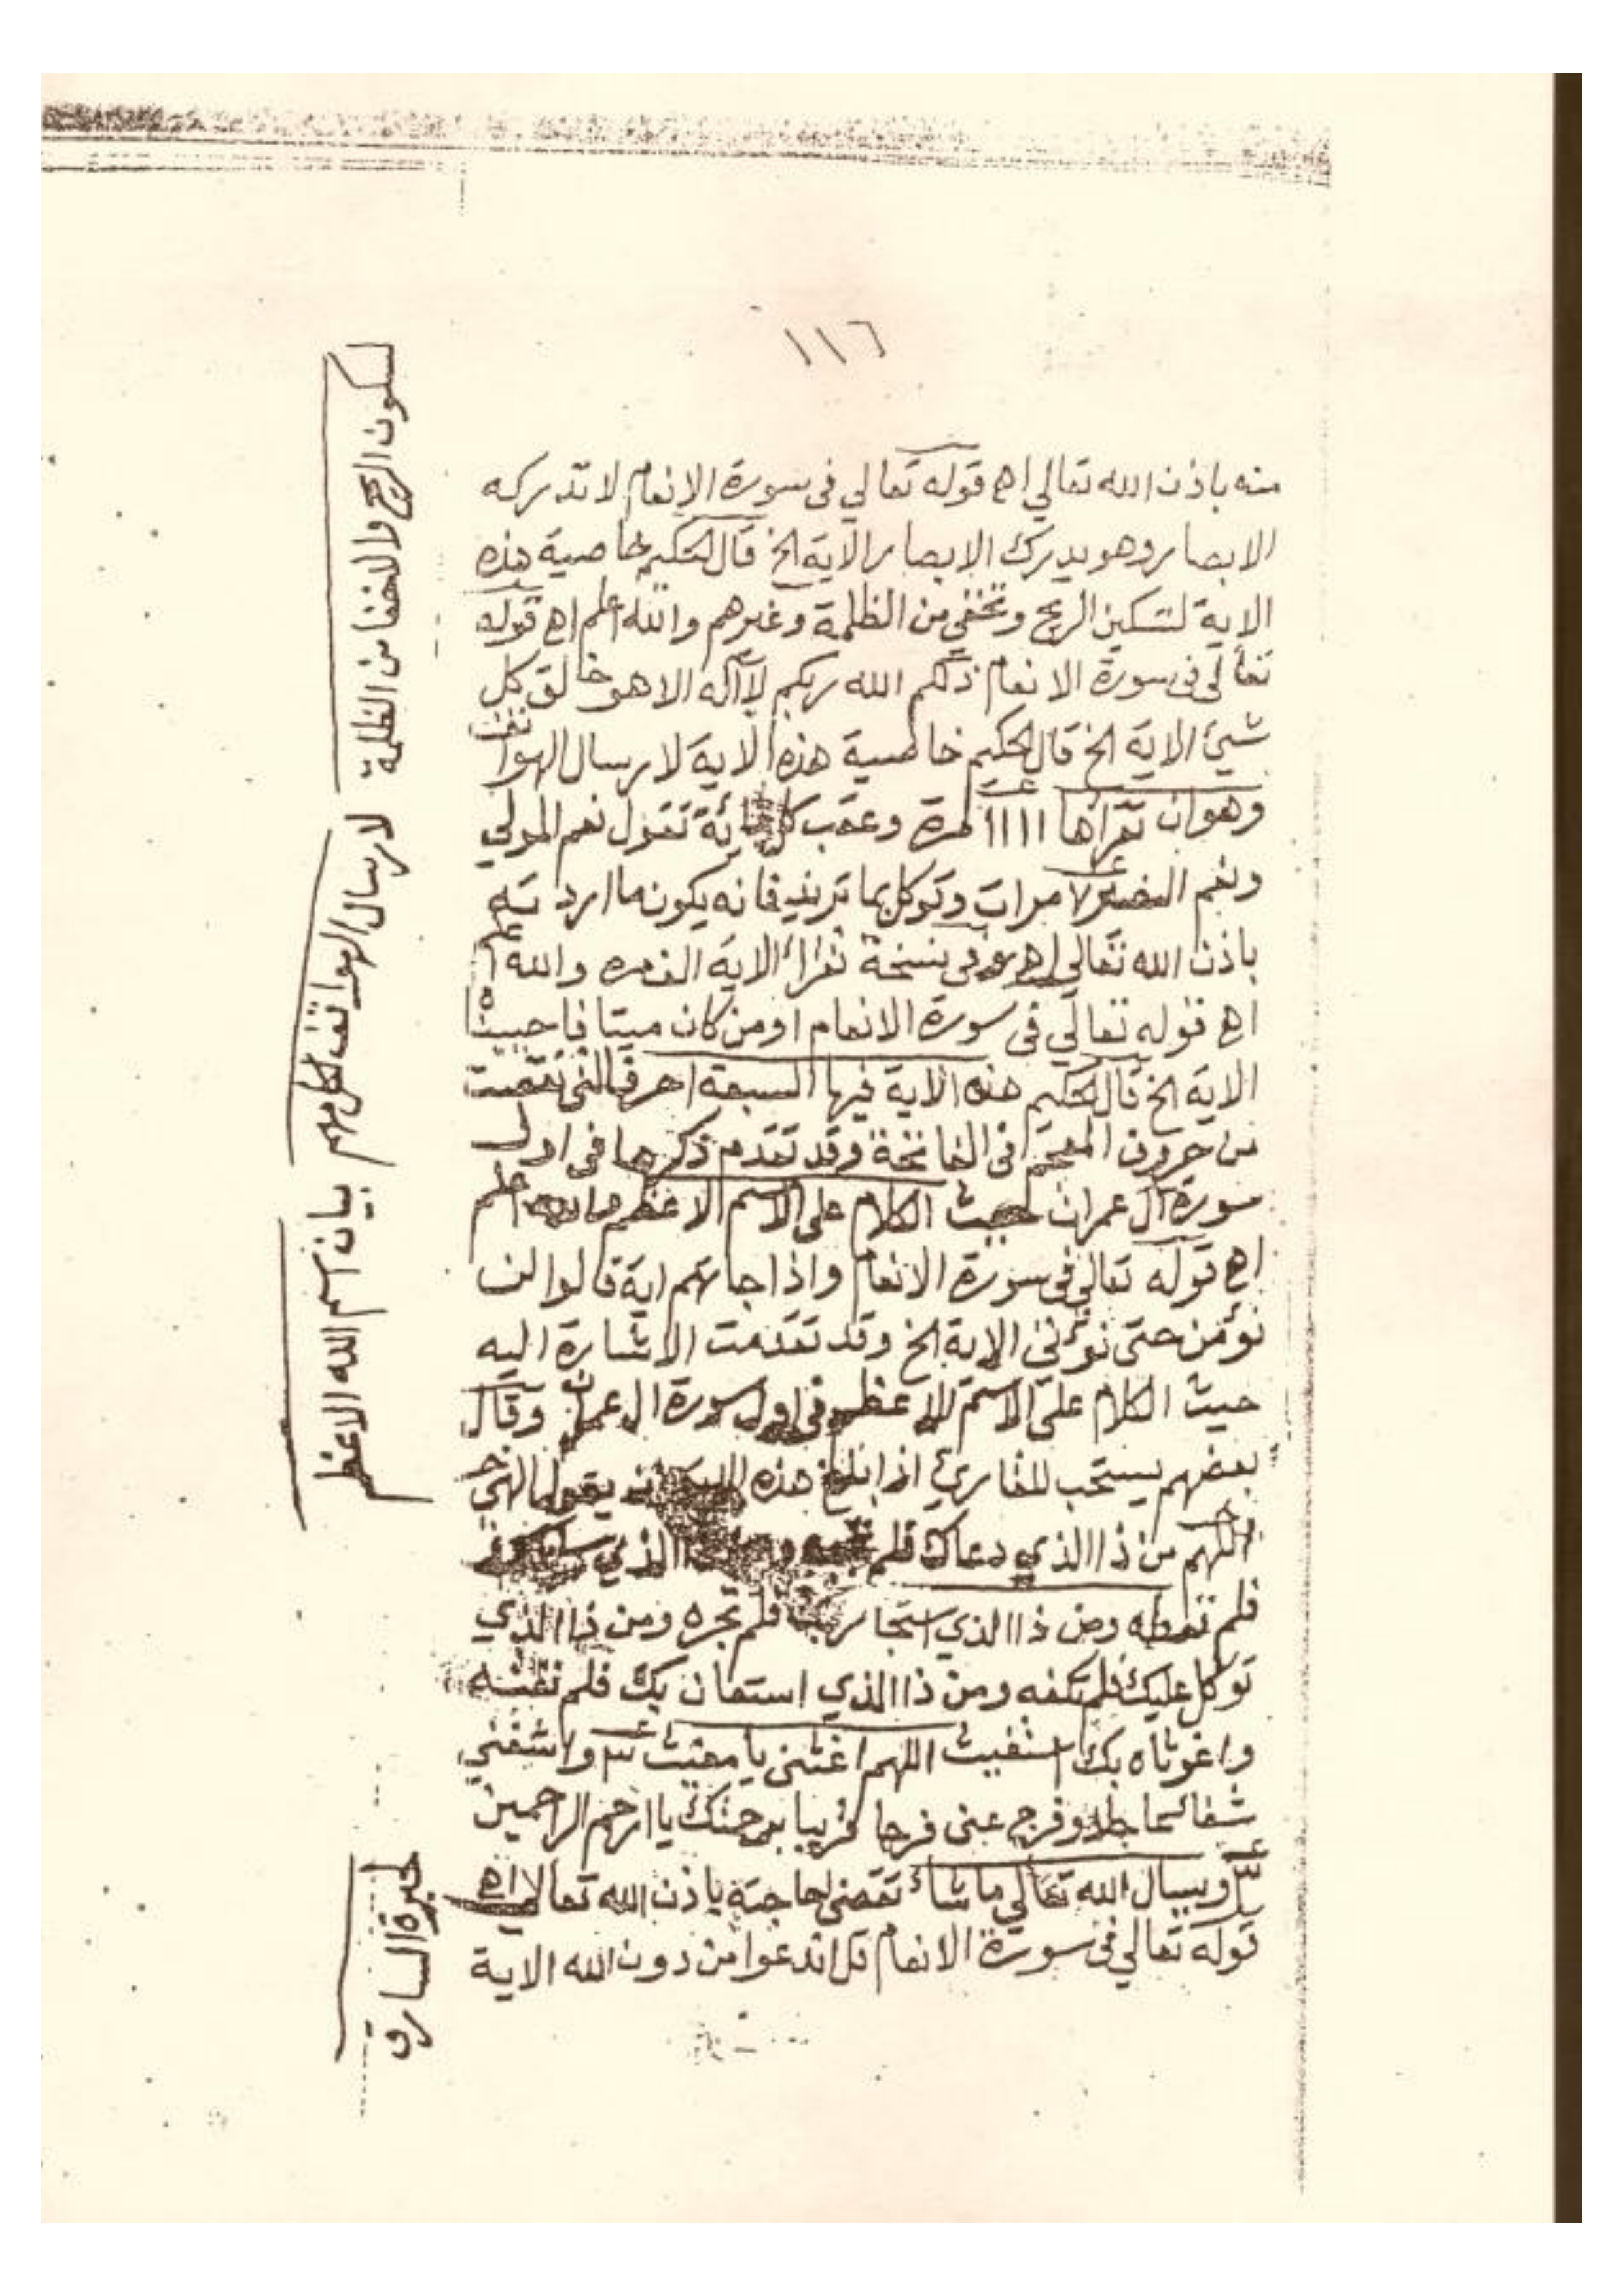 ١١٦
منه باذن الله تعالي اهـ قوله تعالي فى سورة الانعام لا تدركه
الابصار وهو يدرك الابصار الاية الخ قال الحكيم خاصية هذه
الاية لتسكين الريح وتخفي من الظلمة وغيرهم والله اعلم اهـ قوله
تعالى فى سورة الانعام ذلكم الله ربكم لا اله الا هو خالق كل
شيئ الاية الخ قال الحكيم خاصية هذه الاية لارسال الهواتف
وهو ان تقرأها ١١١١ مرة وعقب كل مائة تقول نعم المولي
ونعم النصير ٧ مرات وتوكل بما تريد فانه يكون ما اردته
باذن الله تعالي اهـ وفى نسخة تقرأ الاية الف مره والله اعلم
اهـ قوله تعالي فى سورة الانعام او من كان ميتا فاحييناه
الاية الخ قال الحكيم هذه الاية فيها السبعة احرف التى نقصت
من حروف المعجم فى الفاتحة وقد تقدم ذكرها فى اول
سورة آل عمران حيث الكلام على الاسم الاعظم اعلم
اهـ قوله تعالي فى سورة الانعام واذا جاءتهم اية قالوا لن
نؤمن حتى نؤتي الاية الخ وقد تقدمت الاشارة اليه
حيث الكلام على الاسم الاعظم فى اول سورة ال عمران وقال
بعضهم يستحب للقاريئ اذا بلغ هذه ان يقول الهي
اللهم من ذا الذي دعاك فلم الذي
فلم تعطه ومن ذا الذي استجار بك فلم تجره ومن ذا الذي
توكل عليك فلم تكفه ومن ذا الذي استعان بك فلم تغثه
واغوثاه بك استغيث اللهم اغثنى يا مغيث ٣ واشفني
شفا وفرج عنى فرجا قريبا برحمتك يا ارحم الراحمين
ويسال الله تعالي ما شاء تقضى حاجته باذن الله تعالى اهـ
قوله تعالي فى سورة الانعام قل اندعوا من دون الله الاية
لسكون الريح والاخفا من الظلمة
لارسال الهواتف لكل مهم
بيان اسم الله الاعظم
لحيرة السارق